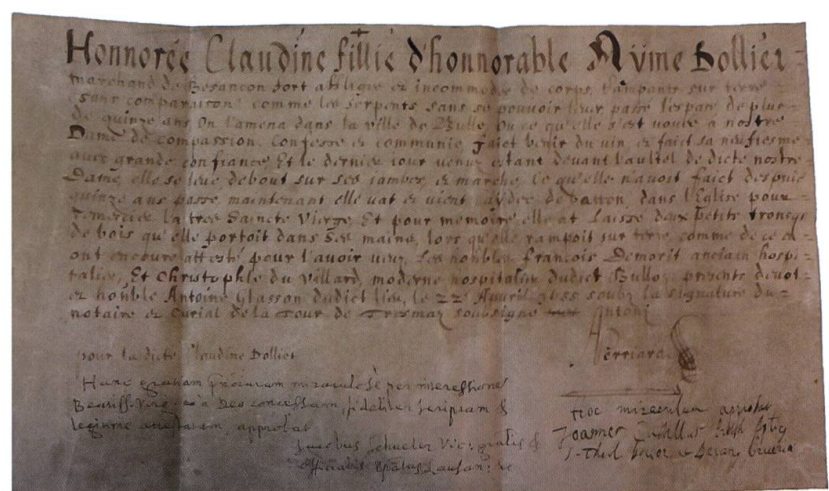 Honnorée Claudine fillie d'honnorable Aÿme Dollier
marchand de Besancon fort affligée et incommodée de corps, rampante sur terre
(sans comparaison) comme les serpents sans se pouvoir lever passé l'espace de plus
de quinze ans On l'amena dans la ville de Bullo, Ou ce qu'elle s'est vouée a nostre
Dame de compassion. Confesse et communie, faict benir du vin, et faict sa neufiesme
avec grande confiance, Et le dernier iour venuz estant devant l'aultel de dicte nostre
Dame, elle se leve debout sur ses iambes, et marche, Ce qu'elle n'avoit faict despuis
quinze ans passe, maintenant elle vat et vient aydee de baston, dans l'Eglise pour
remercier la tres Saincte Vierge, Et pour memoire elle at laisse deux petits troncqs
de bois qu'elle portoit dans ses mains, lors qu'elle rampoit sur terre, comme de ce
ont encoure attesté pour l'avoir veuz, les honnbles François Demorit ancïain hospi-
talier, Et Christophle du Villard, moderne hospitalier dudict Bullo, presents devot
et honnble Antoine Glasson dudict lieu, le 22 Apvril 1655 soubz la signature du
notaire et Curial de la Tour de Tresmaz soubsigné Antoni
Perriard
pour la dicte Claudine Dollier
Hanc gratiam miraculosè per intercessionem
Beatiss. Virginis a Deo concessam, fideliter scriptam &
legitime attestatam, approbat
Jacobus Schueler Vic. glis &
officialis Epatus Lausan:
Hoc miraculum approbat
Joannes
S. Theol. Doctor Decanus